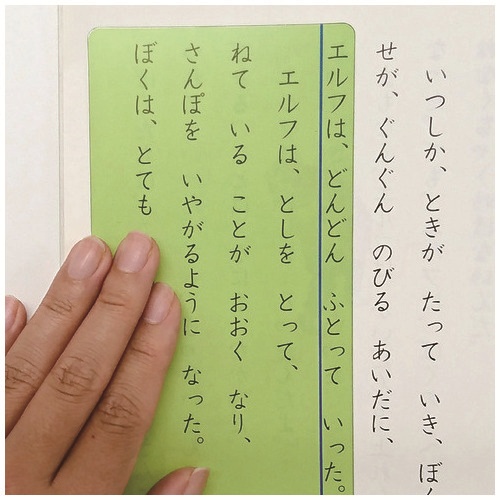 いつしか、ときが　たって　いき、ぼ
せが、ぐんぐん　のびる　あいだに、
エルフは、どんどん　ふとって　いった。
エルフは、としを　とって、
ねて　いる　ことが　おおく　なり、
さんぽを　いやがるように　なった。
ぼくは、とても